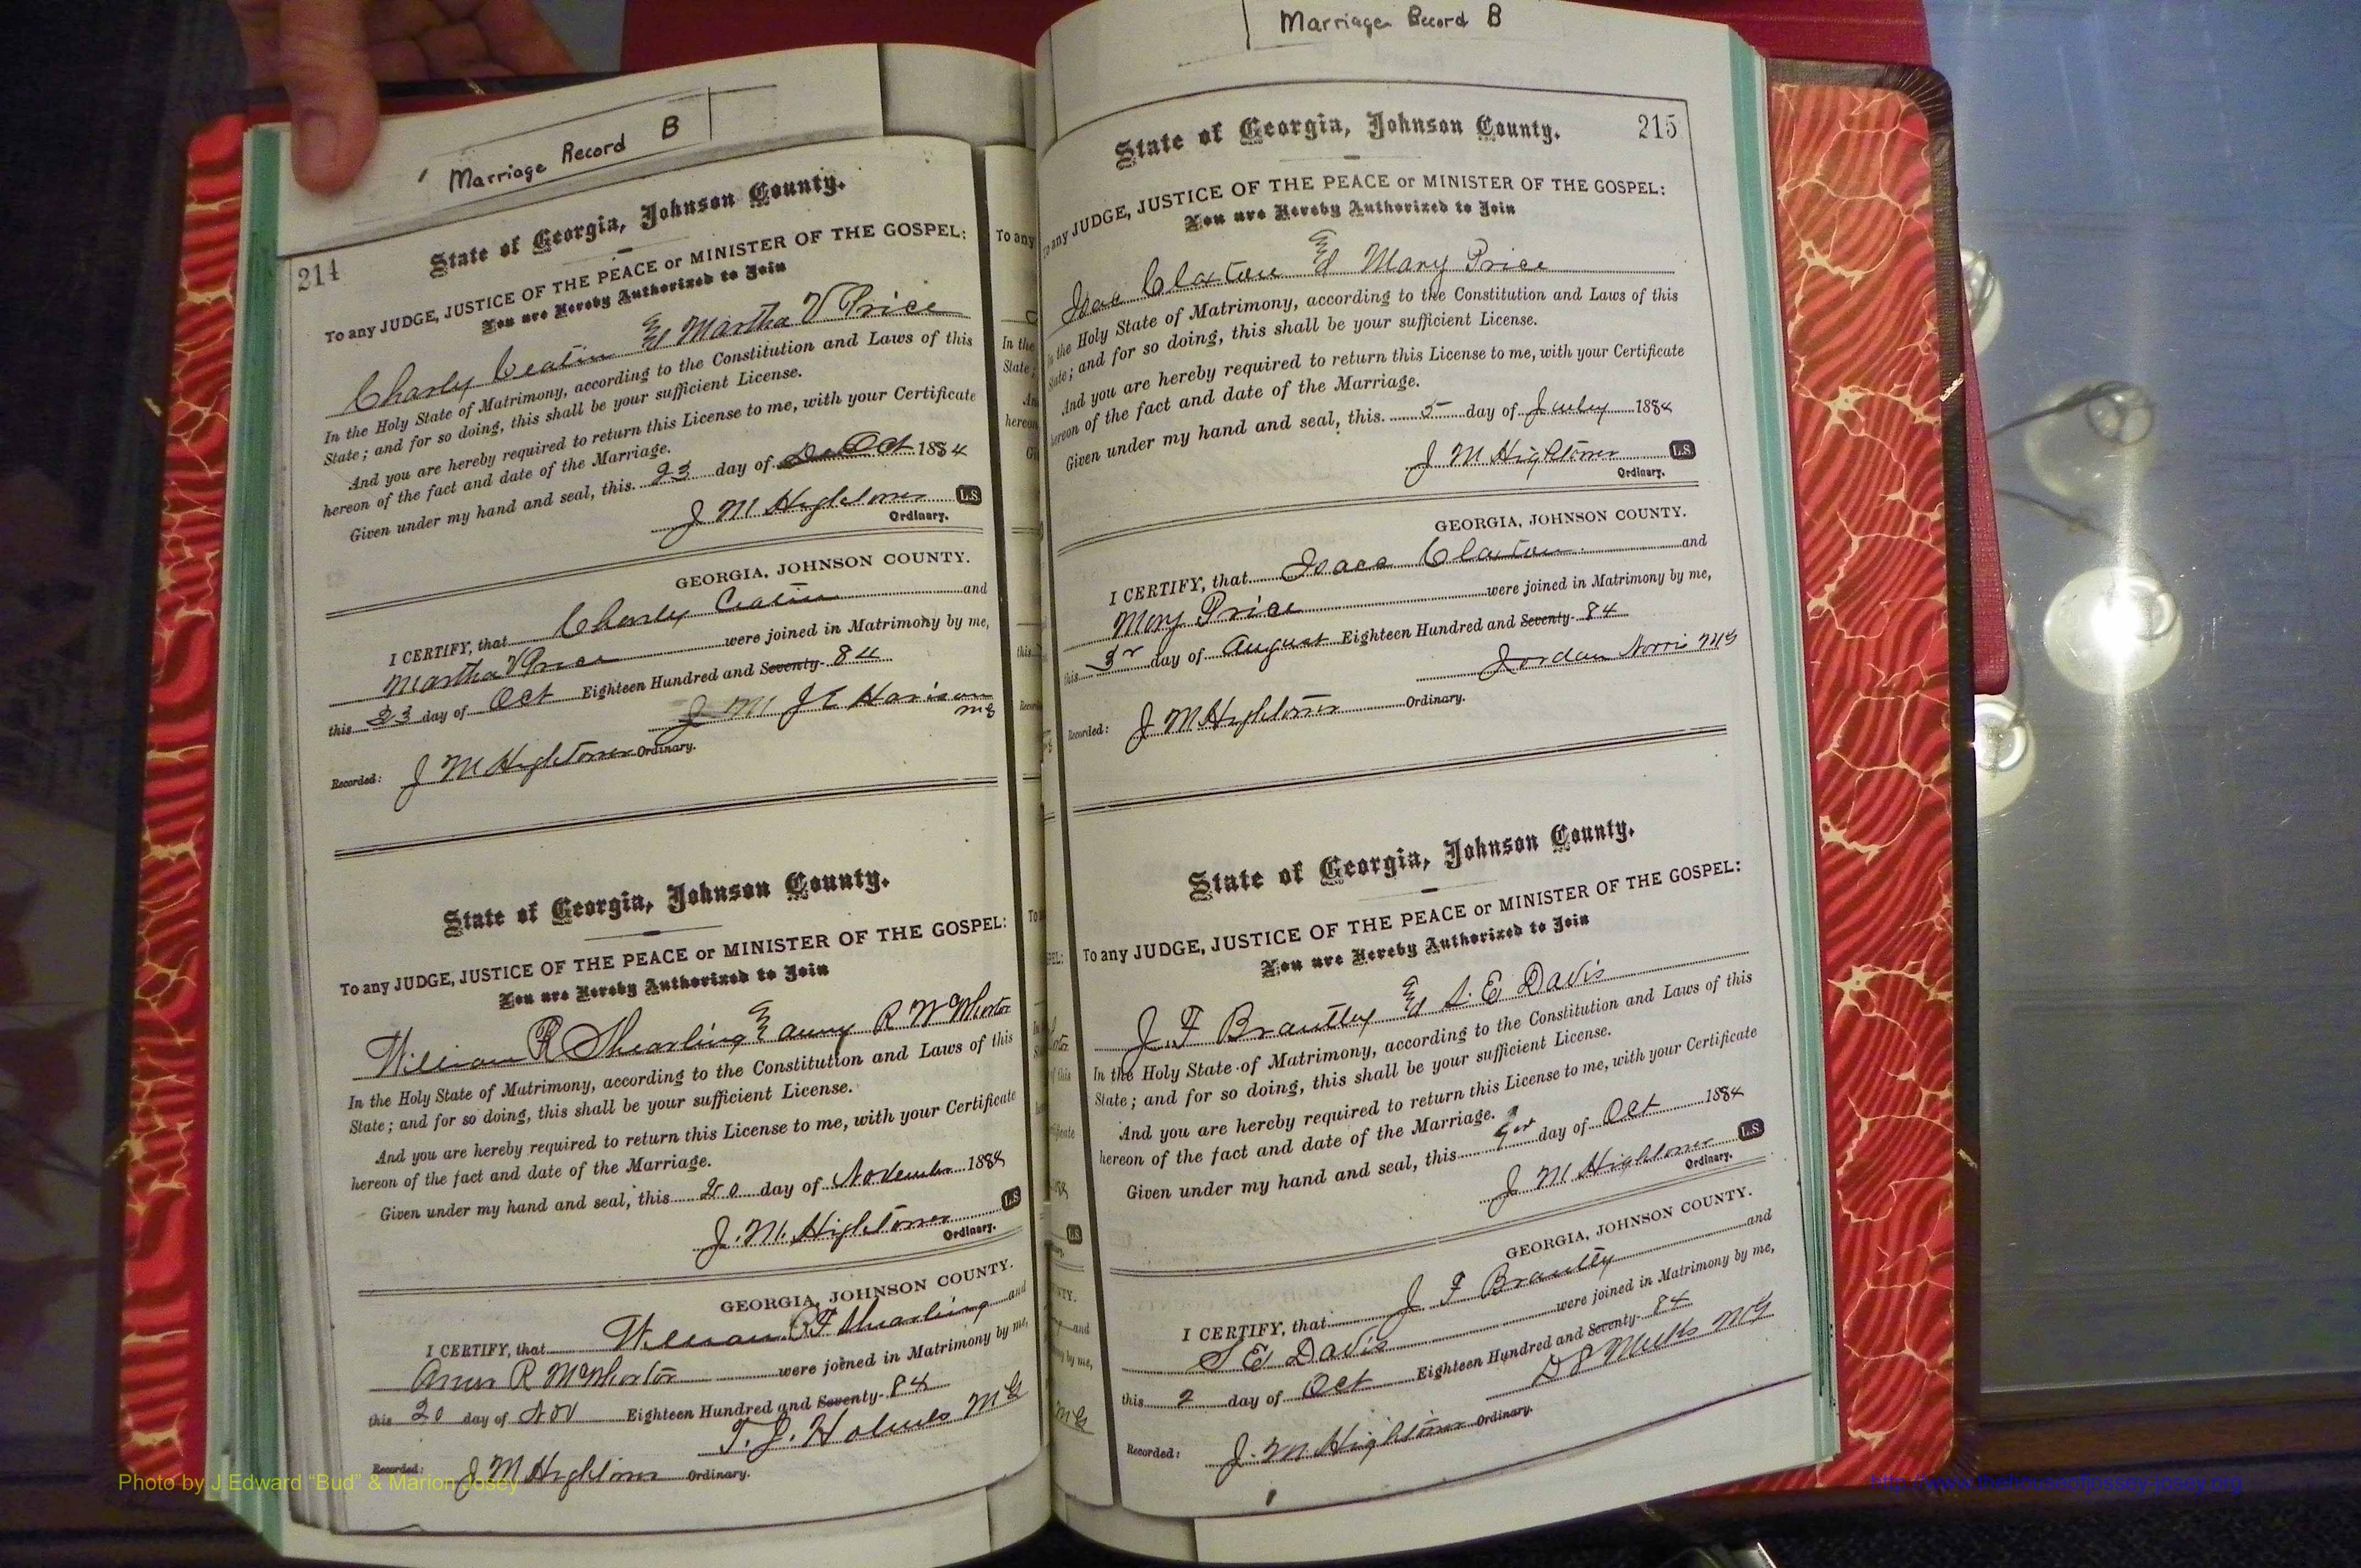 Marriage Record B
214
State of Georgia, Johnson County.
To any JUDGE, JUSTICE OF THE PEACE or MINISTER OF THE GOSPEL:
You are Hereby Authorized to Join
Charly & Martha V Price
In the Holy State of Matrimony, according to the Constitution and Laws of this
State; and for so doing, this shall be your sufficient License.
And you are hereby required to return this License to me, with your Certificate
hereon of the fact and date of the Marriage.
Given under my hand and seal, this 23 day of Oct 1884
J M Hightower L.S.
Ordinary.
GEORGIA, JOHNSON COUNTY.
I CERTIFY, that Charly and
Martha V Price were joined in Matrimony by me,
this 23 day of Oct Eighteen Hundred and Seventy- 84
J M J E Harison
MG
Recorded: J M Hightower Ordinary.
State of Georgia, Johnson County.
To any JUDGE, JUSTICE OF THE PEACE or MINISTER OF THE GOSPEL:
You are Hereby Authorized to Join
William R Shearling & R McWhorter
In the Holy State of Matrimony, according to the Constitution and Laws of this
State; and for so doing, this shall be your sufficient License.
And you are hereby required to return this License to me, with your Certificate
hereon of the fact and date of the Marriage.
Given under my hand and seal, this 20 day of November 1884
J. M. Hightower L.S.
Ordinary.
GEORGIA, JOHNSON COUNTY.
I CERTIFY, that William Shearling and
R McWhorter were joined in Matrimony by me,
this 20 day of Nov Eighteen Hundred and Seventy- 84
T. J. Holmes MG
Recorded: J M Hightower Ordinary.
Marriage Record B
215
State of Georgia, Johnson County.
To any JUDGE, JUSTICE OF THE PEACE or MINISTER OF THE GOSPEL:
You are Hereby Authorized to Join
Isac Claxton & Mary Price
In the Holy State of Matrimony, according to the Constitution and Laws of this
State; and for so doing, this shall be your sufficient License.
And you are hereby required to return this License to me, with your Certificate
hereon of the fact and date of the Marriage.
Given under my hand and seal, this 5 day of 1884
J M Hightower L.S.
Ordinary.
GEORGIA, JOHNSON COUNTY.
I CERTIFY, that Isaac Claxton and
Mary Price were joined in Matrimony by me,
this 3r day of August Eighteen Hundred and Seventy- 84
Jordan Norris MG
Recorded: J M Hightower Ordinary.
State of Georgia, Johnson County.
To any JUDGE, JUSTICE OF THE PEACE or MINISTER OF THE GOSPEL:
You are Hereby Authorized to Join
J. F Brantley & S. E Davis
In the Holy State of Matrimony, according to the Constitution and Laws of this
State; and for so doing, this shall be your sufficient License.
And you are hereby required to return this License to me, with your Certificate
hereon of the fact and date of the Marriage.
Given under my hand and seal, this 1st day of Oct 1884
J M Hightower L.S.
Ordinary.
GEORGIA, JOHNSON COUNTY.
I CERTIFY, that J F Brantly and
S E Davis were joined in Matrimony by me,
this 2 day of Oct Eighteen Hundred and Seventy- 84
Meeks MG
Recorded: J. M. Hightower Ordinary.
Photo by J Edward "Bud" & Marion Josey
http://www.thehouseofjossey-josey.org